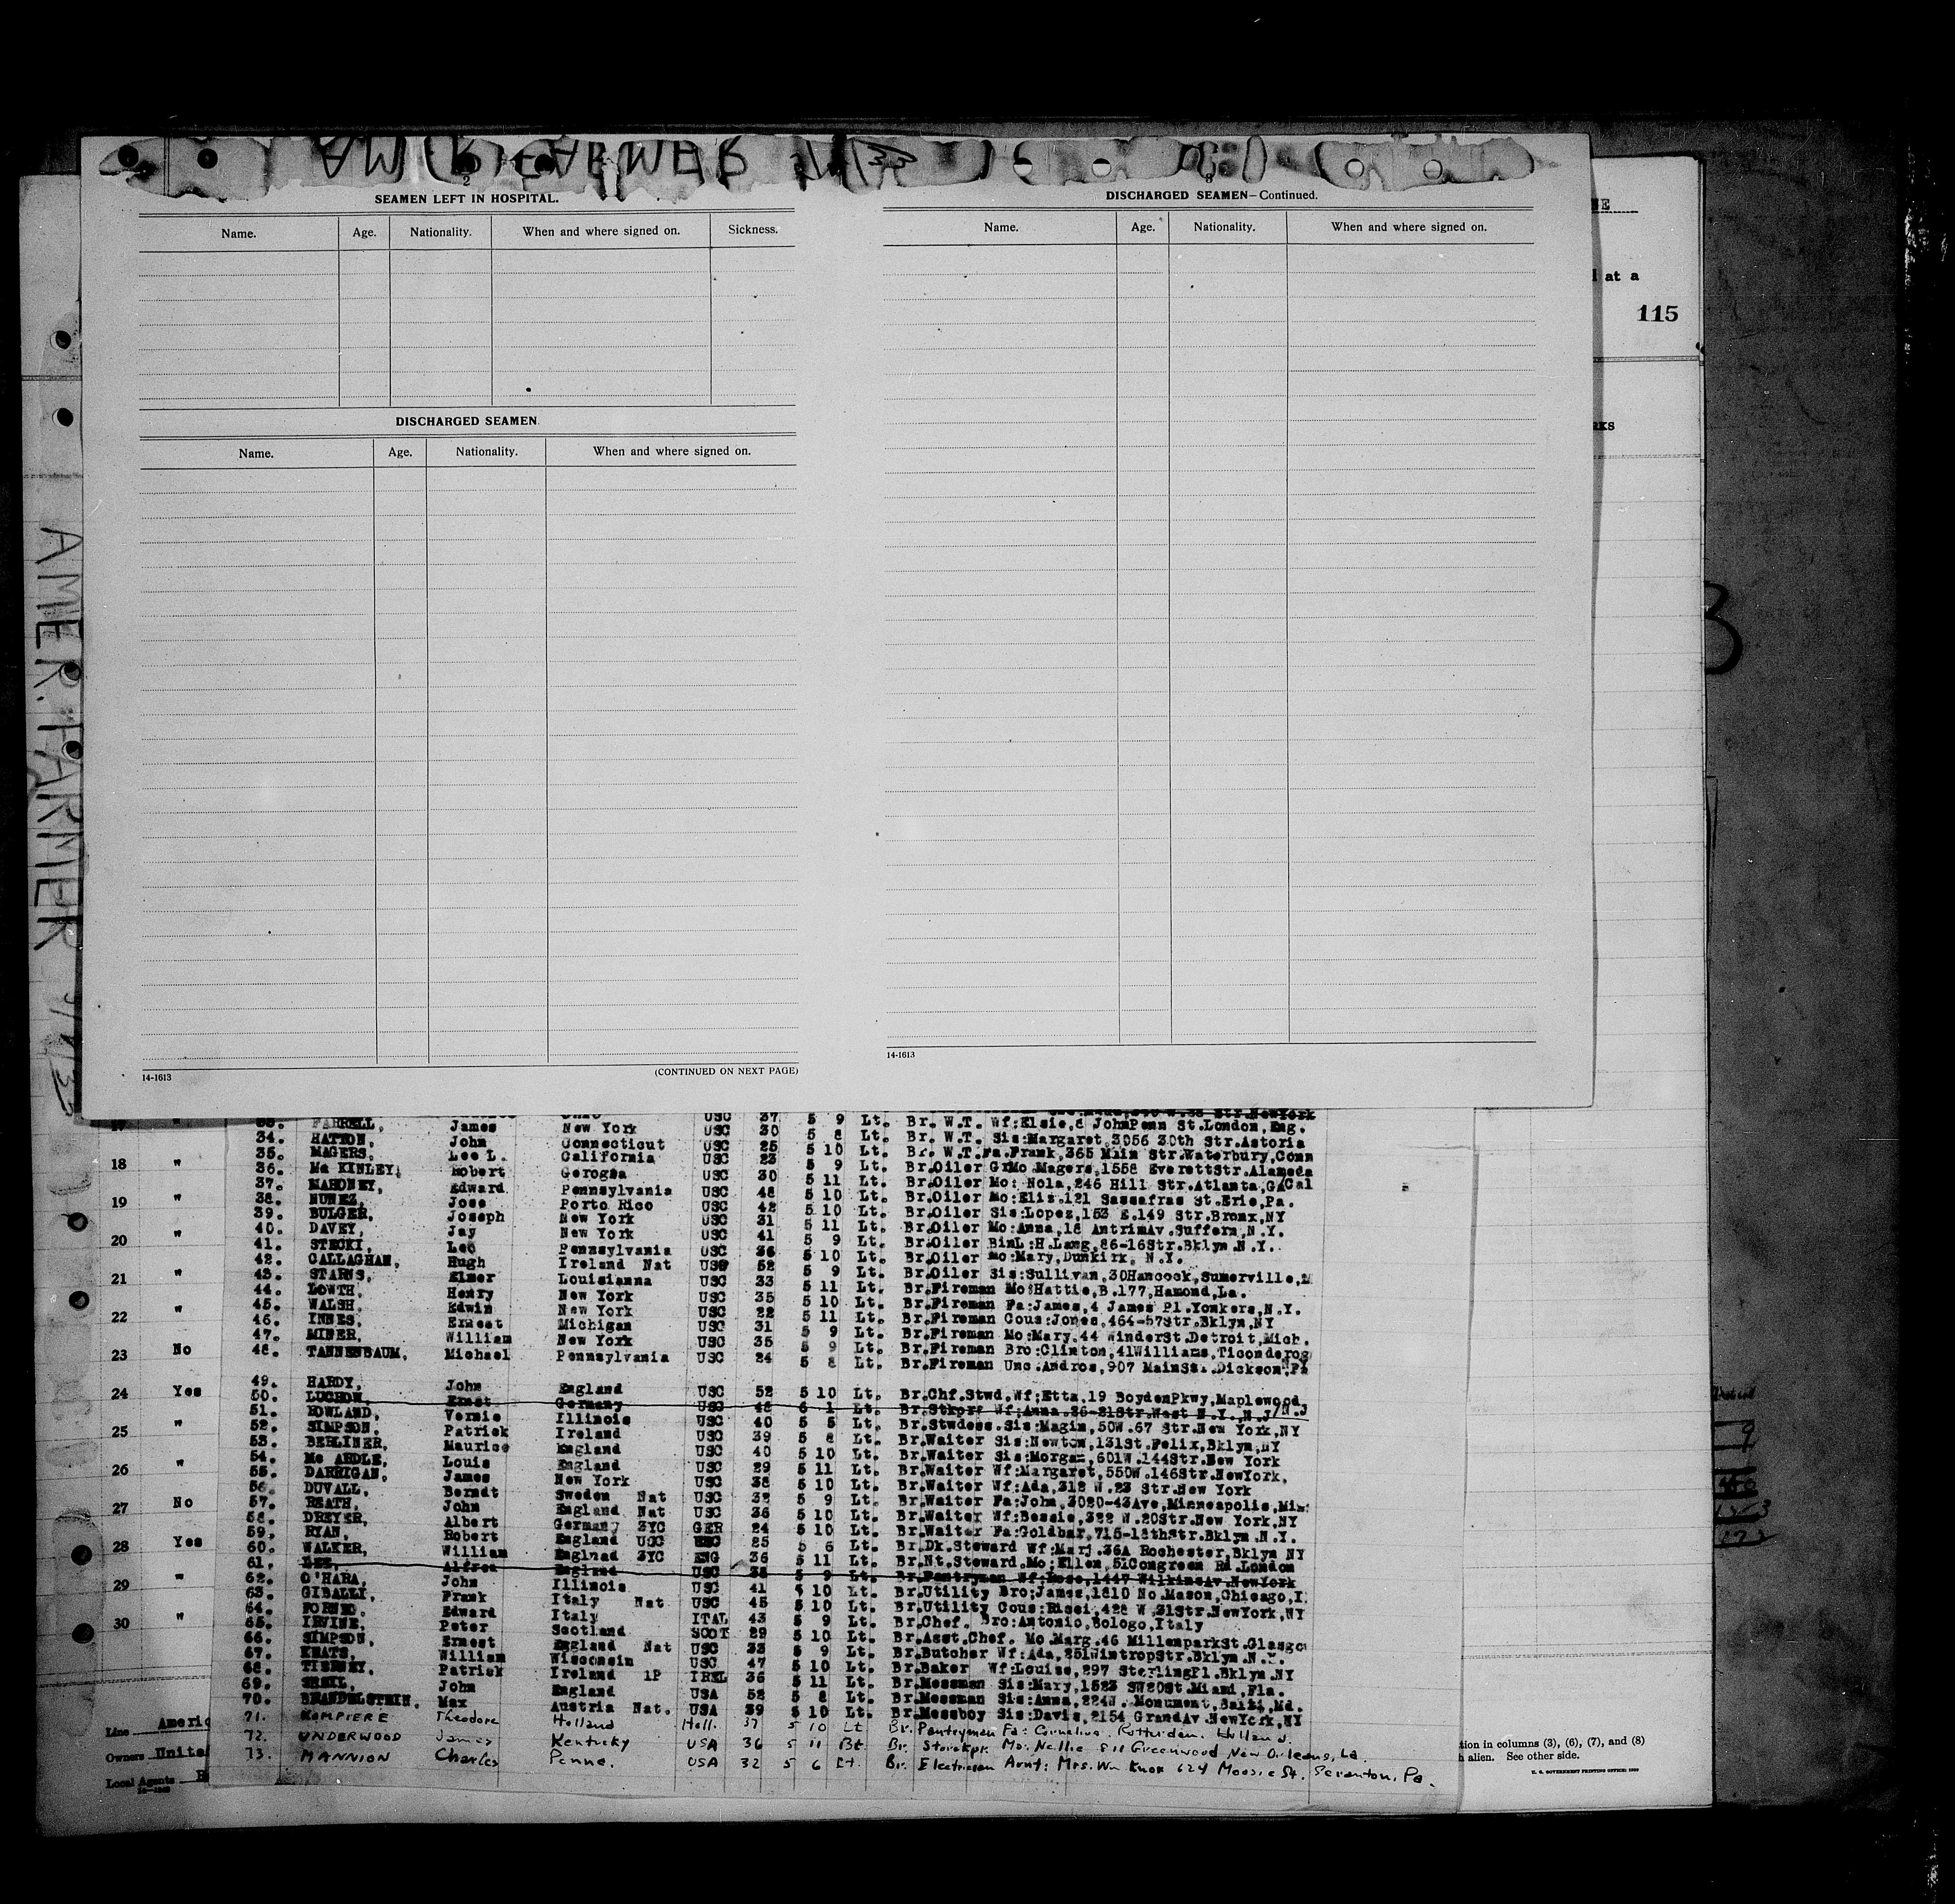 AMER. FARMER
2
SEAMEN LEFT IN HOSPITAL.
Name. Age. Nationality. When and where signed on. Sickness.
DISCHARGED SEAMEN
Name. Age. Nationality. When and where signed on.
14-1613
(CONTINUED ON NEXT PAGE)
DISCHARGED SEAMEN—Continued.
Name. Age. Nationality. When and where signed on.
14-1613
at a
115
AMER. FARMER
FARRELL, James New York USC 30
34. HATTON, John Connecticut USC 25
35. MAGERS, Lee L. California USC 23
18 " 36. Mc KINLEY, Robert Gerogia USC 30
37. MAHONEY, Edward Pennsylvania USC 48
19 " 38. NUNEZ, Jose Porto Rico USC 42
39. BULGER, Joseph New York USC 31
" 40. DAVEY, Jay New York USC 41
20 41. STECKI, Leo Pennsylvania USC 36
" 42. CALLAGHAN, Hugh Ireland Nat 52
21 43. STARNS, Elmer Louisianna USC 33
" 44. LOWTH, Henry New York USC 35
45. WALSH, Edwin New York USC 22
22 46. INNES, Ernest Michigan USC 31
47. MINER, William New York USC 35
23 No 48. TANNENBAUM, Michael Pennsylvania USC 24
Br. W.T. Wf:Elsie,8 JohnPenn St.London, Eng.
Br. W.T. Sis:Margaret,3056 30th Str.Astoria
Br. W.T.Fa.Frank,365 Main Str.Waterbury,Conn
Br.Oiler GrMo Magers,1558 EverettStr.Alameda
Br.Oiler Mo: Nola,246 Hill Str.Atlanta,GA Cal
Br.Oiler Mo:Eliz.121 Sassafras St.Erie,Pa.
Br.Oiler Sis:Lopez,153 E.149 Str.Bronx,NY
Br.Oiler Mo:Anna,18 AntrimAv.Suffern,N.Y.
Br.Oiler BinL:H.Lang,86-16Str.Bklyn.N.Y.
Br.Oiler Mo:Mary,Dunkirk, N.Y.
Br.Oiler Sis:Sullivan,30Hancock,Sumerville,M
Br.Fireman Mo:Hattie,B.177,Hamond,La.
Br.Fireman Fa:James,4 James Pl.Yonkers,N.Y.
Br.Fireman Cous:Jones,464-57Str.Bklyn,NY
Br.Fireman Mo:Mary.44 WinderSt.Detroit,Mich.
Br.Fireman Bro:Clinton,41Williams,Ticonderog
Br.Fireman Unc:Andros,907 MainSt. Dickson,PA
49. HARDY, John England USC 52 5 10 Lt. Br.Chf.Stwd.Wf:Etta,19 BoydenPkwy,Maplewood,
24 Yes 50. LUCHOW, Ernst Germany USC 48 6 1 Lt. Br.Stkpr Wf:Anna.36-21Str.West N.Y.,N.J/N.J
51. ROWLAND, Vernie Illinois USC 40 5 5 Lt. Br.Stwdess.Sis:Magin,50W.67 Str.New York,NY
25 " 52. SIMPSON, Patrick Ireland USC 39 5 8 Lt. Br.Waiter Sis:Newton,131St.Felix,Bklyn,NY
53. BERLINER, Maurice England USC 40 5 10 Lt. Br.Waiter Sis:Morgan,601W.144Str.New York
26 " 54. Mc ARDLE, Louis England USC 29 5 11 Lt. Br.Waiter Wf:Margaret,550W.146Str.NewYork,
55. DARRIGAN, James New York USC 38 5 10 Lt. Br.Waiter Wf:Ada,312 W.23 Str.New York
56. DUVALL, Berndt Sweden Nat USC 5 9 Lt. Br.Waiter Fa:John,3020-43Ave,Minneapolis,Min
27 No 57. HEATH, John England Nat USC 36 5 10 Lt. Br.Waiter Wf:Bessie,322 W.20Str.New York,NY
58. DREYER, Albert Germany 3YC GER 24 5 10 Lt. Br.Waiter Fa:Goldbar,715-18thStr.Bklyn N.Y.
59. RYAN, Robert England USC 25 5 6 Lt. Br.Dk.Steward Wf:Marj.36A Rochester,Bklyn NY
28 Yes 60. WALKER, William Englnad 3YC ENG 36 5 11 Lt. Br.Nt.Steward.Mo:Ellen,51Congreen Rd.London
61. LEE, Alfred England USC 38 5 9 Lt. Br.Pantryman Wf:Rose,1447 WilkinsAv.NewYork
29 " 62. O'HARA, John Illinois USC 41 5 10 Lt. Br.Utility Bro:James,1810 No.Mason,Chicago,I
63. GIBALLI, Frank Italy Nat USC 45 5 10 Lt. Br.Utility Cous:Risei,428 W.31Str.NewYork,NY
30 " 64. FORNO, Edward Italy ITAL 43 5 9 Lt. Br.Chef. Bro:Antonio,Bologo,Italy
65. IRVINE, Peter Scotland SCOT 29 5 10 Lt. Br.Asst.Chef. Mo.Marg.46 MillenparkSt.Glasgo
66. SIMPSON, Ernest England Nat USC 33 5 9 Lt. Br.Butcher Wf:Ada,251WintropStr.Bklyn N.Y.
67. KEATS, William Wisconsin USC 47 5 10 Lt. Br.Baker Wf:Louise,297 SterlingPl.Bklyn NY
68. TIERNEY, Patrick Ireland 1P IREL 36 5 11 Lt. Br.Messman Sis:Mary,1523 SW20St.Miami,Fla.
69. SHEIL, John England USA 52 5 8 Lt. Br.Messman Sis:Anna,224W. Monument,Balti,Md.
70. BRANDELSTEIN, Max Austria Nat. USA 39 5 10 Lt. Br.Messboy Sis:Davis,2154 GrandAv NewYork,NY
71. KOMPIERE Theodore Holland Holl. 37 5 10 Lt Br. Pantryman Fa: Cornelius. Rotterdam. Holland.
72. UNDERWOOD James Kentucky USA 36 5 11 Br. Storekpr. Mo. Nellie 811 Greenwood New Orleans, La.
73. MANNION Charles Penna. USA 32 5 6 Lt. Br. Electrician Aunt: Mrs. Wm Knox 624 Moosic St. Scranton, Pa.
Line Americ
Owners Unite
Local Agents
tion in columns (3), (6), (7), and (8)
alien. See other side.
U. S. GOVERNMENT PRINTING OFFICE